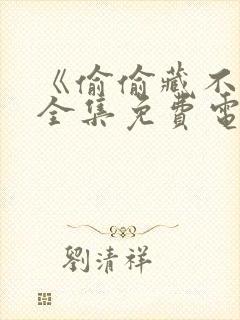 《偷偷藏不
全集免費電
劉清祥